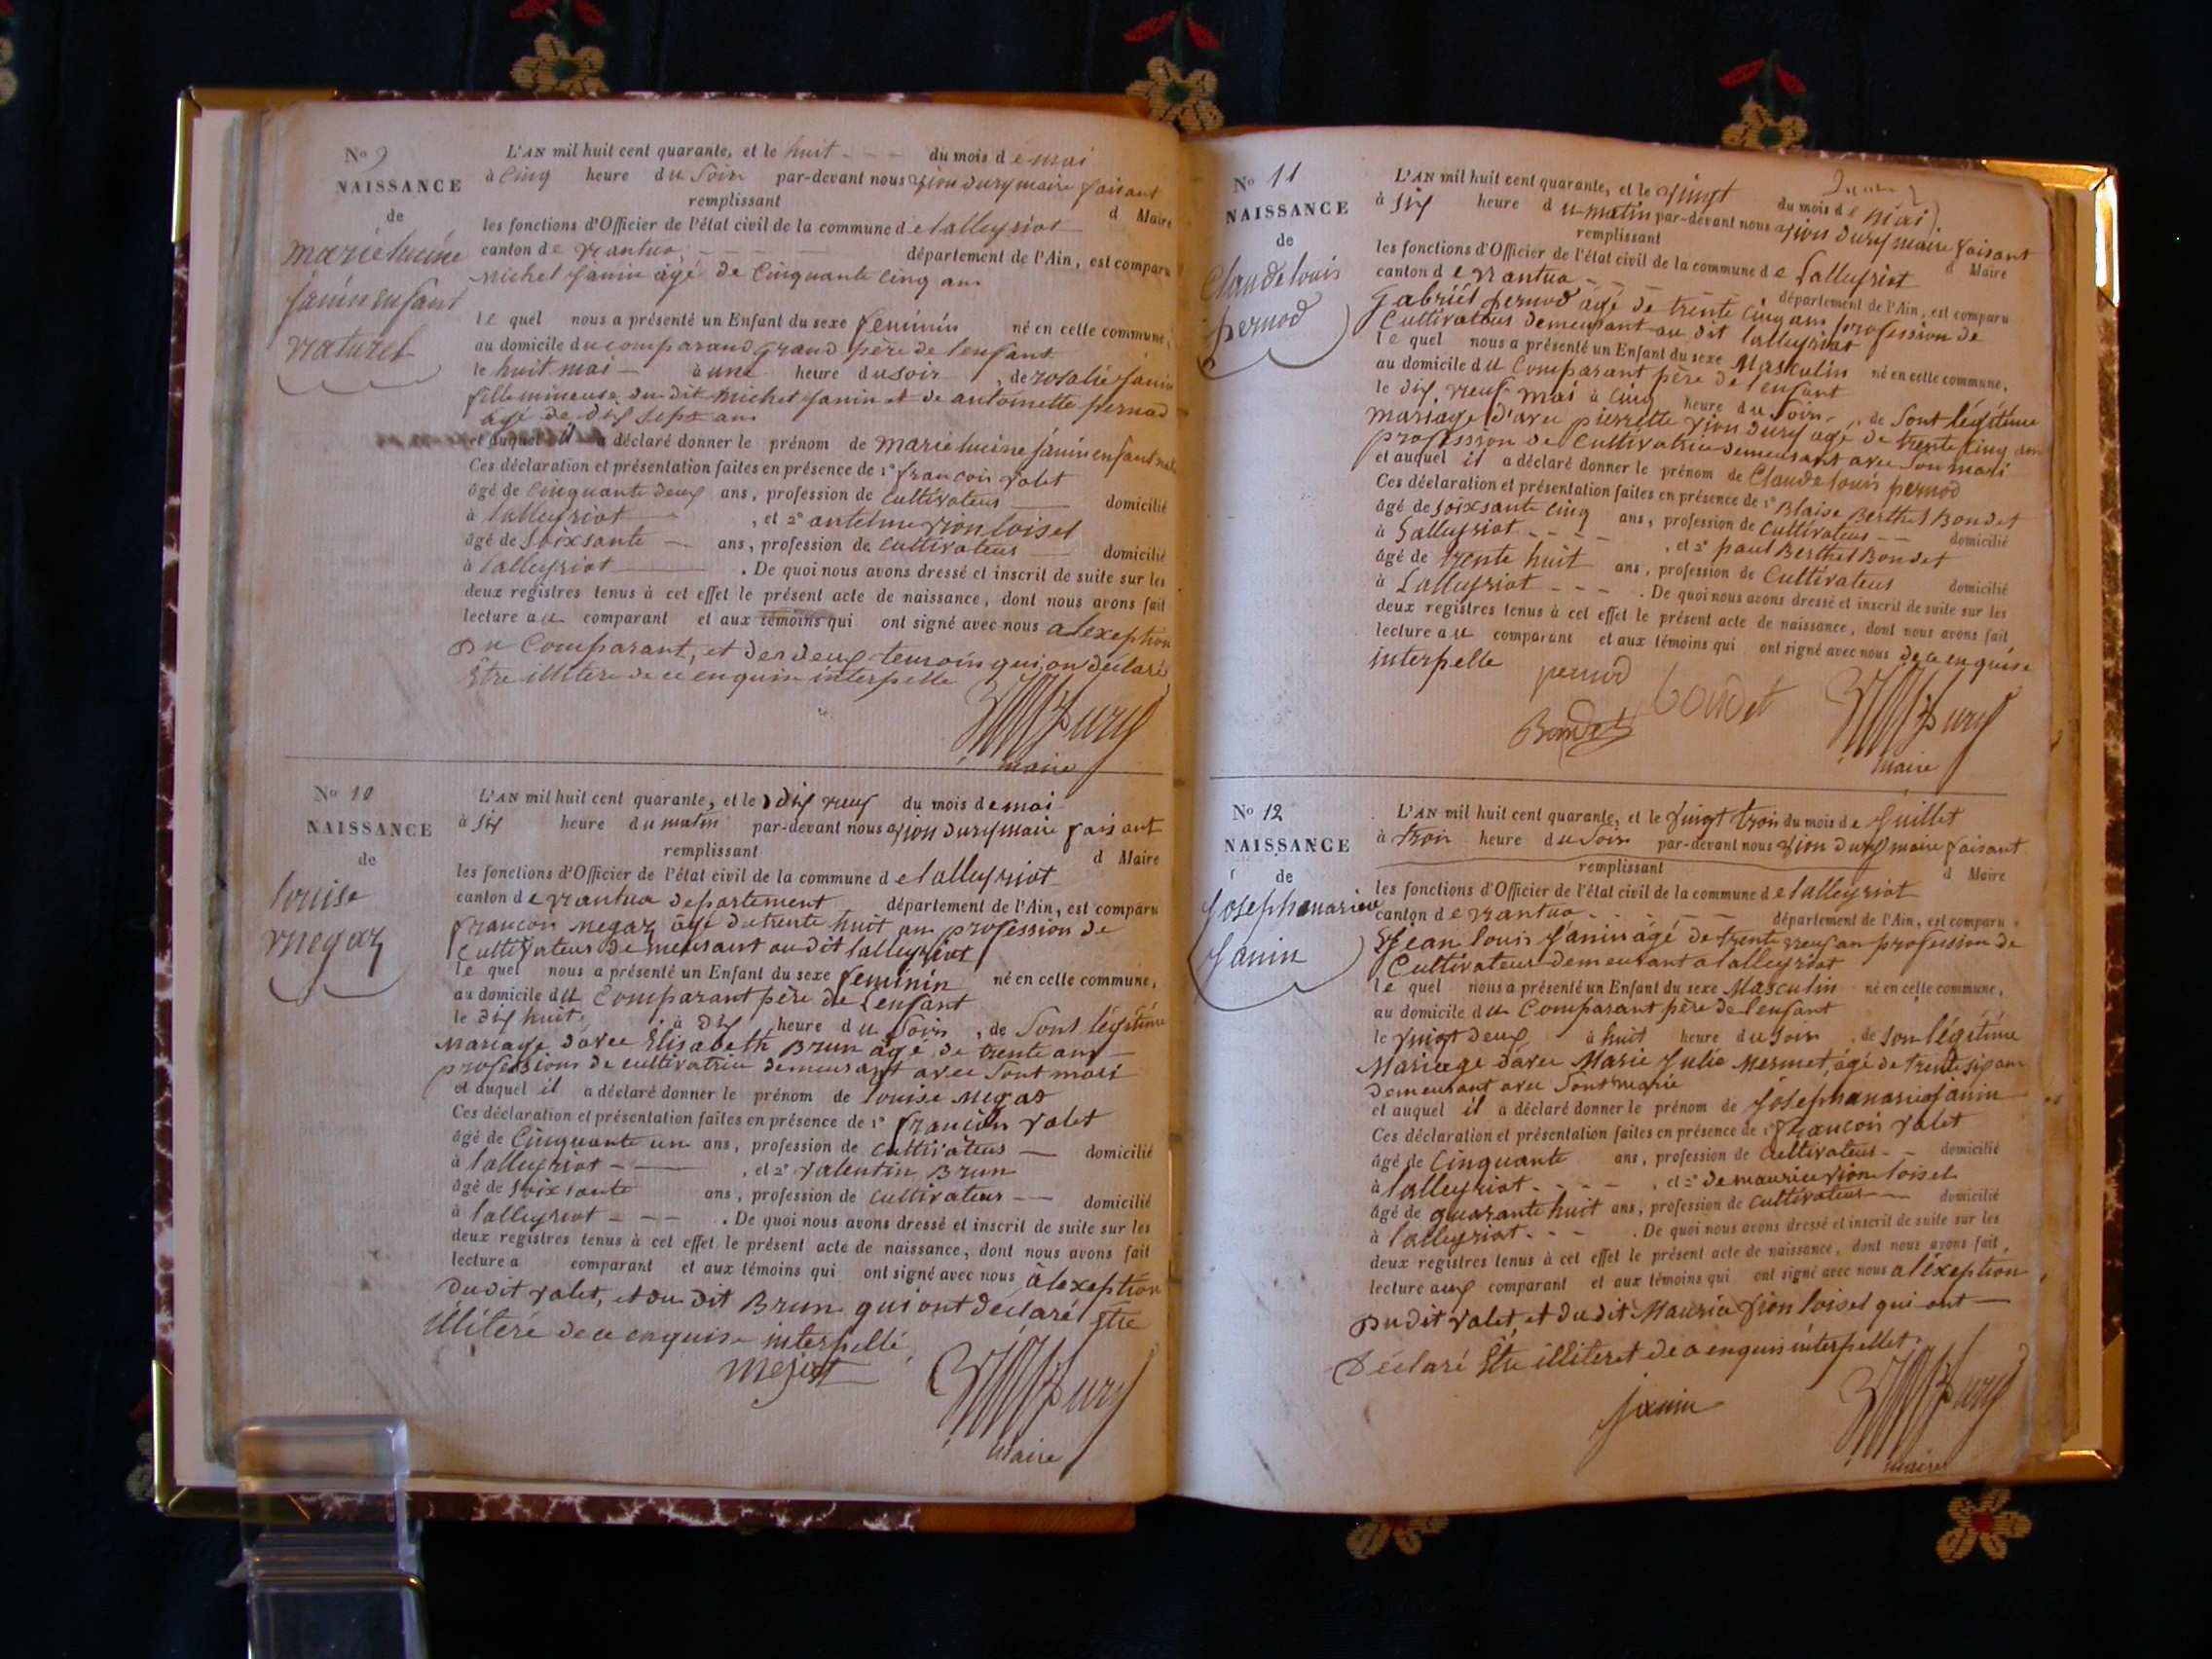 No 9
NAISSANCE
de
marie
janin enfant
naturel
L'AN mil huit cent quarante, et le huit du mois de mai
à Cinq heure du Soir par-devant nous maire faisant
remplissant
d Maire
les fonctions d'Officier de l'état civil de la commune de lalleyriat
canton de nantua département de l'Ain, est comparu
Michel Janin âgé de Cinquante Cinq ans
le quel nous a présenté un Enfant du sexe feminin né en cette commune,
au domicile du comparand grand père de lenfant
le huit mai à une heure du soir, de rosalie Janin
fille mineuse du dit Michel Janin et de antoinette pernod
agé de dix sept ans
et auquel il a déclaré donner le prénom de marie janin enfant
Ces déclaration et présentation faites en présence de 1° francois valet
âgé de Cinquante deux ans, profession de cultivateus domicilié
à lalleyriat, et 2° antelme vion loisel
âgé de Soixsante ans, profession de cultivateus domicilié
à lalleyriat. De quoi nous avons dressé et inscrit de suite sur les
deux registres tenus à cet effet le présent acte de naissance, dont nous avons fait
lecture au comparant et aux témoins qui ont signé avec nous a lexeption
Du Comparant, et des deux temoin qui on déclaré
Etre illitere de ce enquise interpelle
Dury
maire
No 10
NAISSANCE
de
louise
megaz
L'AN mil huit cent quarante, et le dix neuf du mois de mai
à six heure du matin par-devant nous vion dury maire faisant
remplissant
d Maire
les fonctions d'Officier de l'état civil de la commune de lalleyriat
canton de nantua departement département de l'Ain, est comparu
francois megaz âgé de trente huit an profession de
Cultivateus demeurant au dit lalleyriat
le quel nous a présenté un Enfant du sexe feminin né en cette commune,
au domicile du Comparant père de Lenfant
le dix huit à Dix heure du Soir, de Sont légitime
Mariage davec Elisabeth Brun âgé de trente ans
professions de cultivatrice demeurant avec Sont mari
et auquel il a déclaré donner le prénom de louise megas
Ces déclaration et présentation faites en présence de 1° francois valet
âgé de Cinquante un ans, profession de cultivateus domicilié
à lalleyriat, et 2° valentin Brun
âgé de soixsante ans, profession de cultivateus domicilié
à lalleyriat. De quoi nous avons dressé et inscrit de suite sur les
deux registres tenus à cet effet le présent acte de naissance, dont nous avons fait
lecture a comparant et aux témoins qui ont signé avec nous à lexeption
Dudit valet, et du dit Brun qui ont déclaré Etre
illiteré de ce enquise interpellé
Dury
Maire
No 11
NAISSANCE
de
Claude louis
pernod
L'AN mil huit cent quarante, et le vingt du mois de mai
à six heure du matin par-devant nous vion dury maire faisant
remplissant
d Maire
les fonctions d'Officier de l'état civil de la commune de Lalleyriat
canton de nantua, département de l'Ain, est comparu
Gabriel pernod âgé de trente cinq ans profession de
Cultivateus demeurant au dit lalleyriat
le quel nous a présenté un Enfant du sexe Masculin né en cette commune,
au domicile du Comparant père de lenfant
le dix neuf mai à cinq heure du Soir, de Sont légitime
mariage d'avec pierrette vion dury âgé de trente cinq ans
profession de cultivatrice demeurant avec Son mari
et auquel il a déclaré donner le prénom de Claude louis pernod
Ces déclaration et présentation faites en présence de 1° Blaise Berthet Bondet
âgé de soixsante cinq ans, profession de cultivateus domicilié
à Lalleyriat, et 2° paul Berthet Bondet
âgé de trente huit ans, profession de Cultivateus domicilié
à Lalleyriat. De quoi nous avons dressé et inscrit de suite sur les
deux registres tenus à cet effet le présent acte de naissance, dont nous avons fait
lecture au comparant et aux témoins qui ont signé avec nous de ce enquise
interpelle
pernod
bondet
Bondet
Dury
Maire
No 12
NAISSANCE
de
Joseph marie
Janin
L'AN mil huit cent quarante, et le vingt trois du mois de Juillet
à trois heure du Soir par-devant nous vion dury maire faisant
remplissant
d Maire
les fonctions d'Officier de l'état civil de la commune de lalleyriat
canton de nantua département de l'Ain, est comparu
Jean louis Janin âgé de trente neuf an profession de
Cultivateus demeurant a lalleyriat
le quel nous a présenté un Enfant du sexe Masculin né en cette commune,
au domicile du Comparant père de lenfant
le vingt deux à huit heure du soir, de son légitime
Mariage davec Marie Julie Mermet, âgé de trente six ans
Demeurant avec Sont marie
et auquel il a déclaré donner le prénom de Joseph marie Janin
Ces déclaration et présentation faites en présence de 1° francois valet
âgé de Cinquante ans, profession de Cultivateus domicilié
à lalleyriat, et 2° de maurice vion loisel
âgé de quarante huit ans, profession de cultivateus domicilié
à lalleyriat. De quoi nous avons dressé et inscrit de suite sur les
deux registres tenus à cet effet le présent acte de naissance, dont nous avons fait
lecture aux comparant et aux témoins qui ont signé avec nous a léxeption
Du dit valet et du dit Maurice vion loisel qui ont
Déclaré Etre illiteret de ce enquis interpellet
janin
Dury
maire